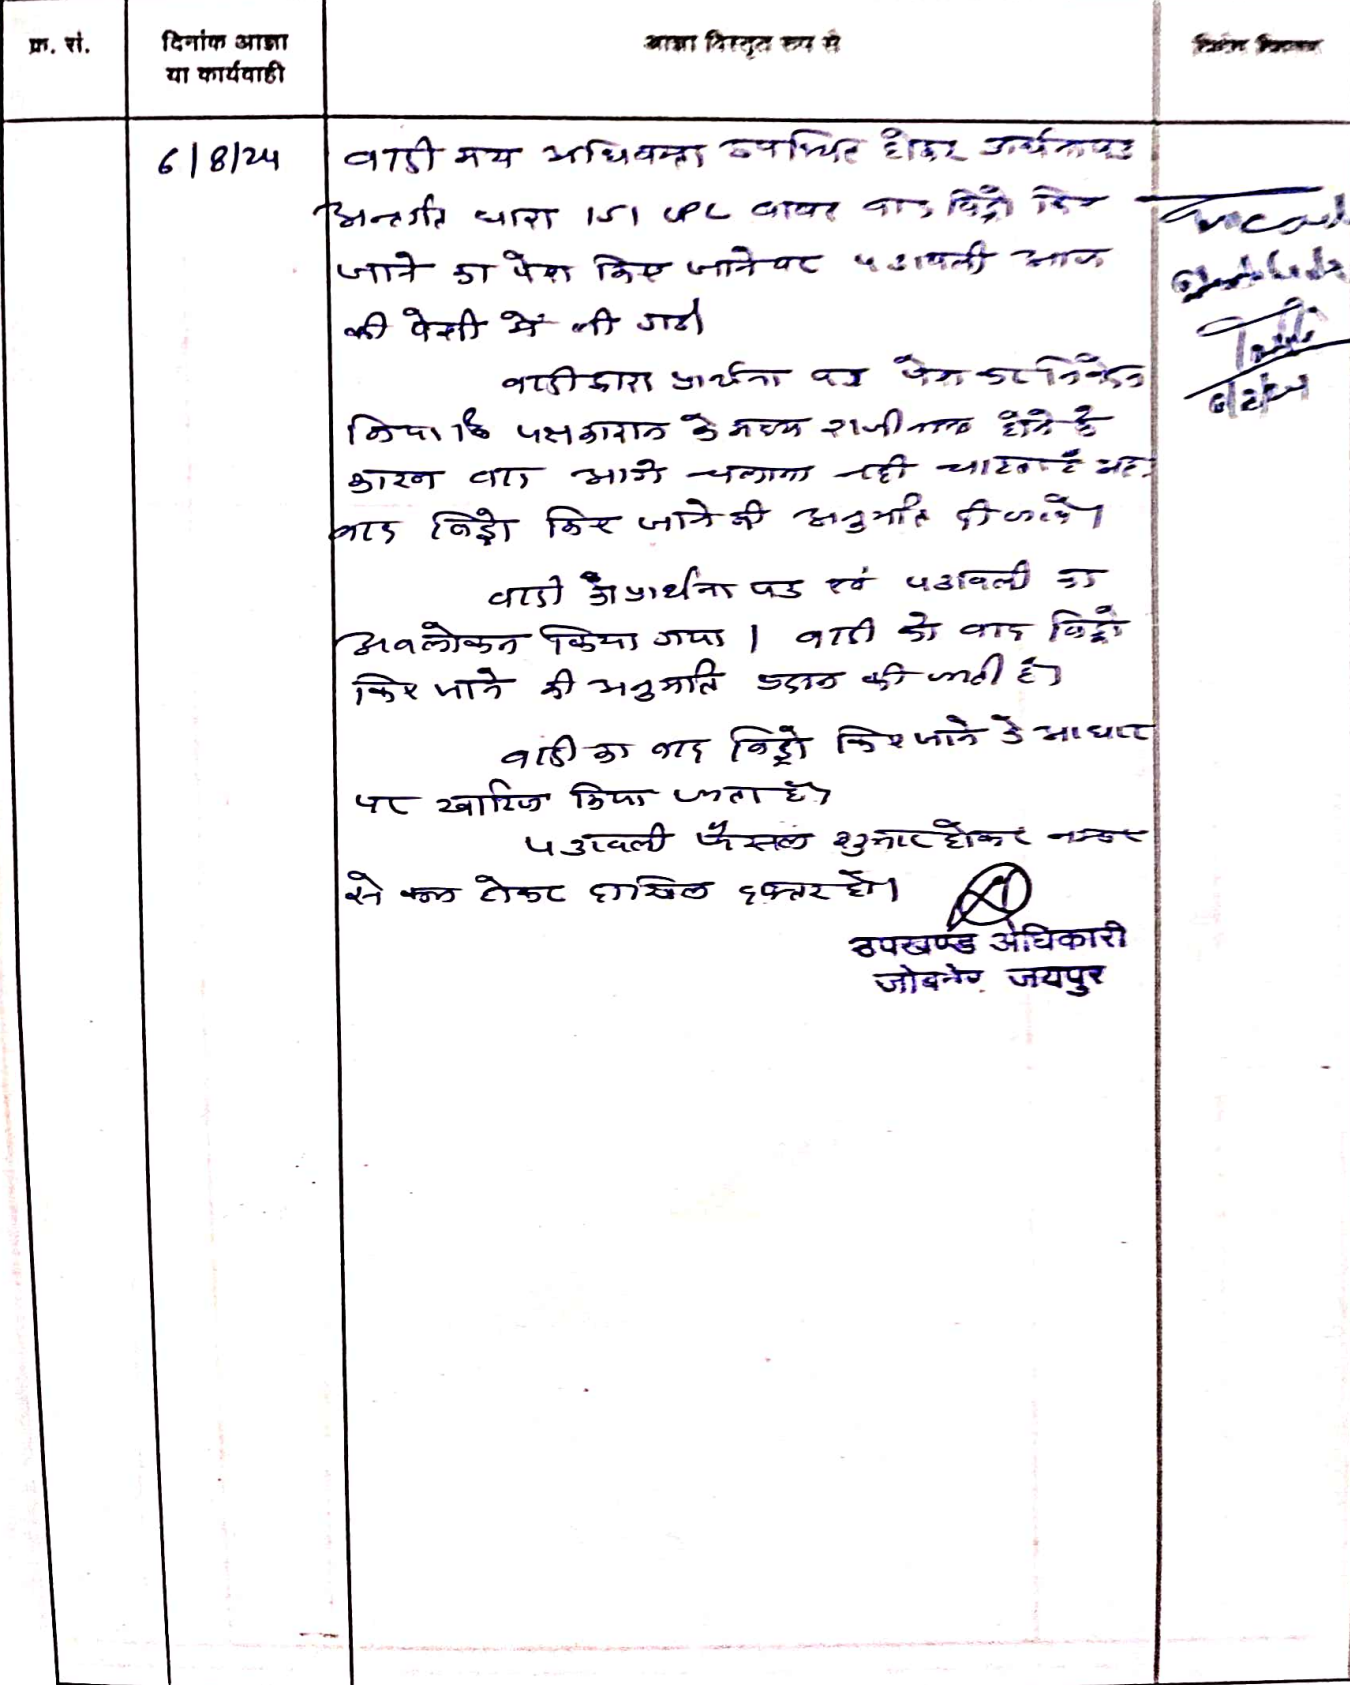 क्र. सं.
दिनांक आज्ञा
या कार्यवाही
आज्ञा विस्तृत रूप से
विशेष विवरण
6/8/24
वादी मय अधिवक्ता उपस्थित होकर प्रार्थनापत्र
अन्तर्गत धारा 151 CPC बाबत वाद विड्रो किए
जाने का पेश किए जाने पर पत्रावली आज
की पेशी में ली गई।
वादी द्वारा प्रार्थना पत्र पेश कर निवेदन
किया कि पक्षकारान के मध्य राजीनामा होने के
कारण वाद आगे चलाना नहीं चाहता है अतः
वाद विड्रो किए जाने की अनुमति दी जावे।
वादी के प्रार्थना पत्र एवं पत्रावली का
अवलोकन किया गया। वादी को वाद विड्रो
किए जाने की अनुमति प्रदान की जाती है।
वादी का वाद विड्रो किए जाने के आधार
पर खारिज किया जाता है।
पत्रावली फैसल शुमार होकर नम्बर
से कम होकर दाखिल दफ्तर हो।
उपखण्ड अधिकारी
जोबनेर, जयपुर